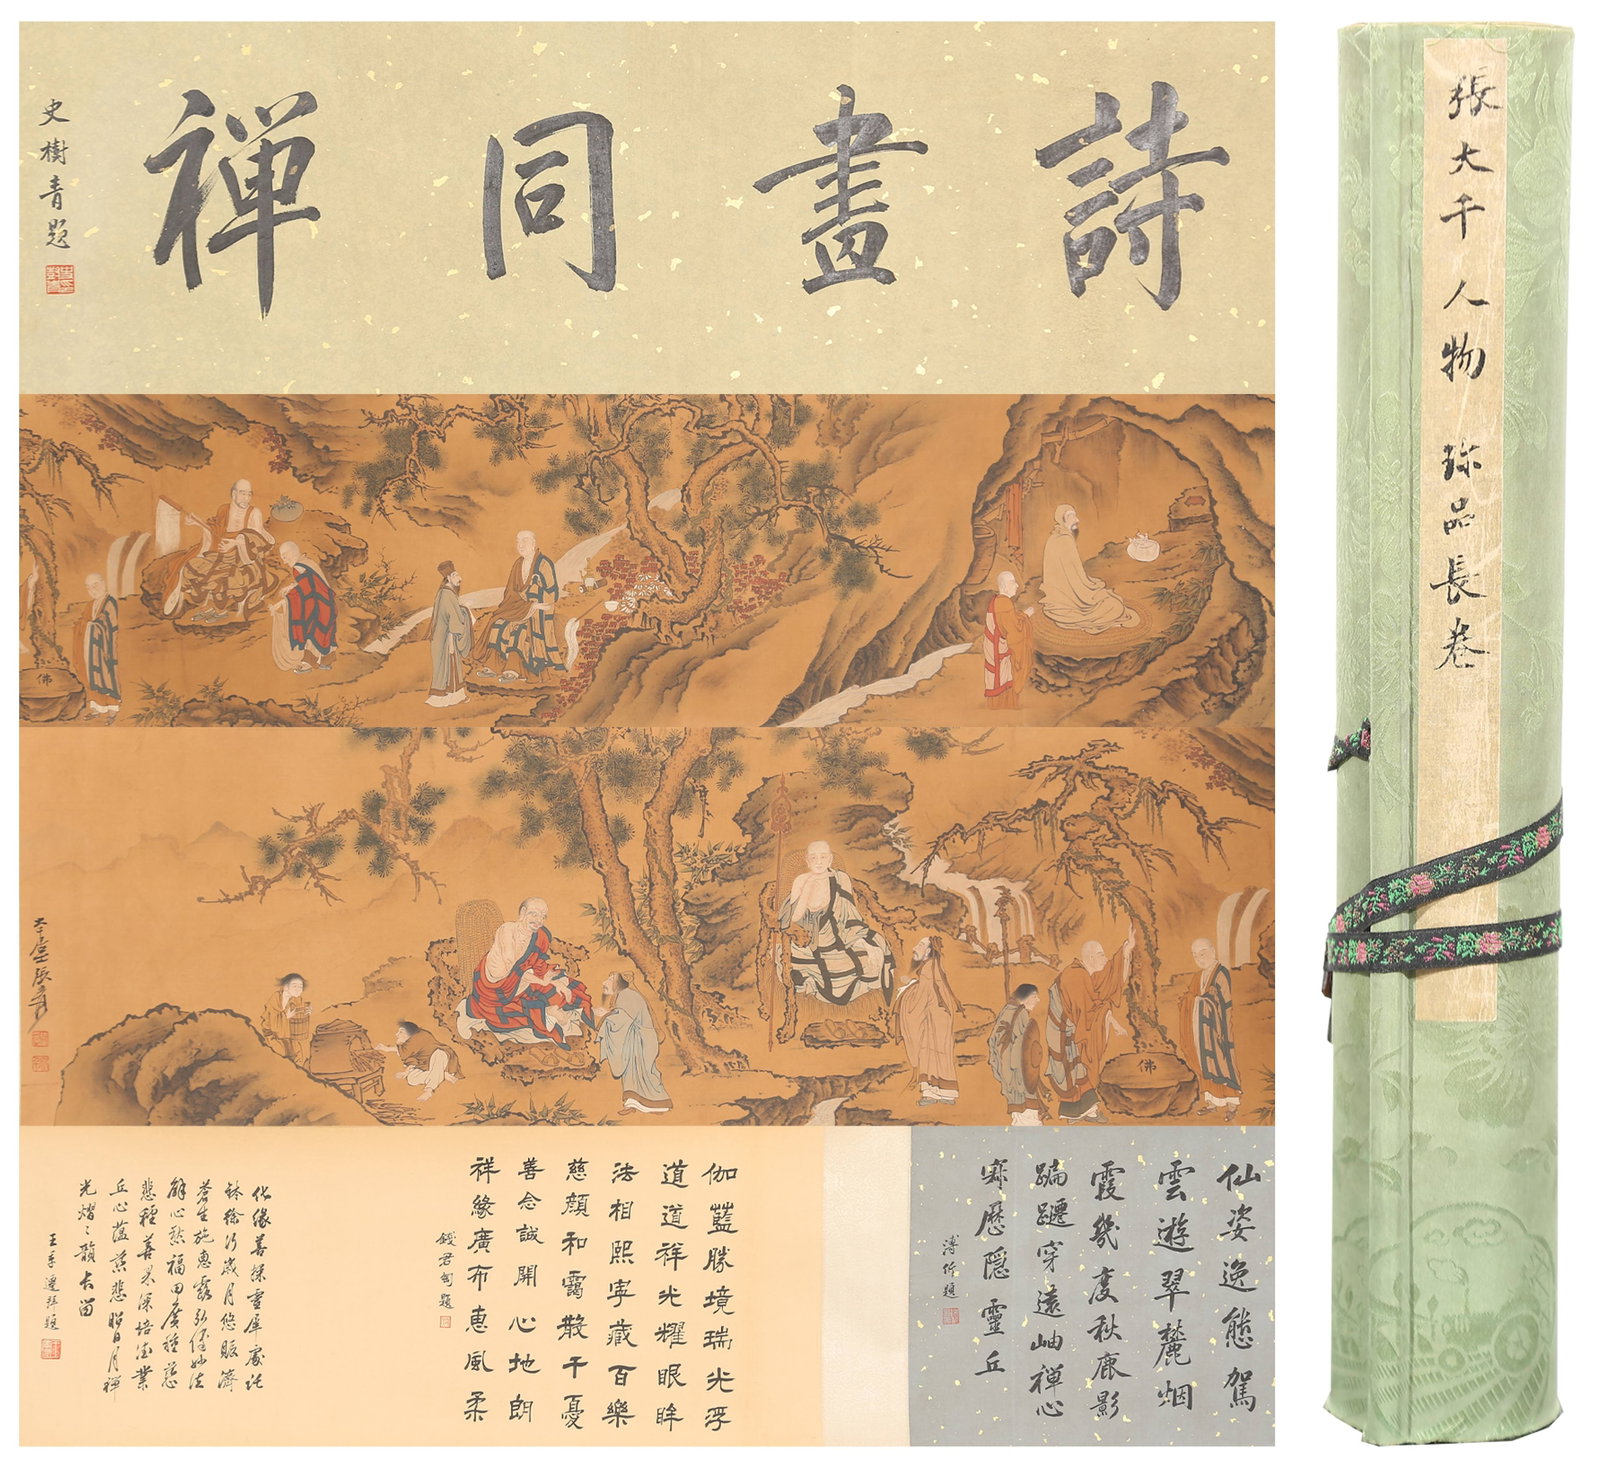 詩畫同禪
史樹青題
佛
大千居士張爰
佛
仙姿逸態駕
雲遊翠麓烟
霞幾度秋鹿影
蹁躚穿遠岫禪心
寂歷隱靈丘
溥忻題
伽藍勝境瑞光浮
道道祥光耀眼眸
法相熙寧藏百樂
慈顏和靄散千憂
善念誠開心地朗
祥緣廣布惠風柔
錢君匋題
化緣善採靈犀處託
鉢徐行歲月悠賑濟
蒼生施惠露弘經妙法
解心愁福田廣種慈
悲種善果深培德業
丘心蘊慈悲昭日月禪
光熠々韻長留
王季遷拜題
張大千人物珍品長卷